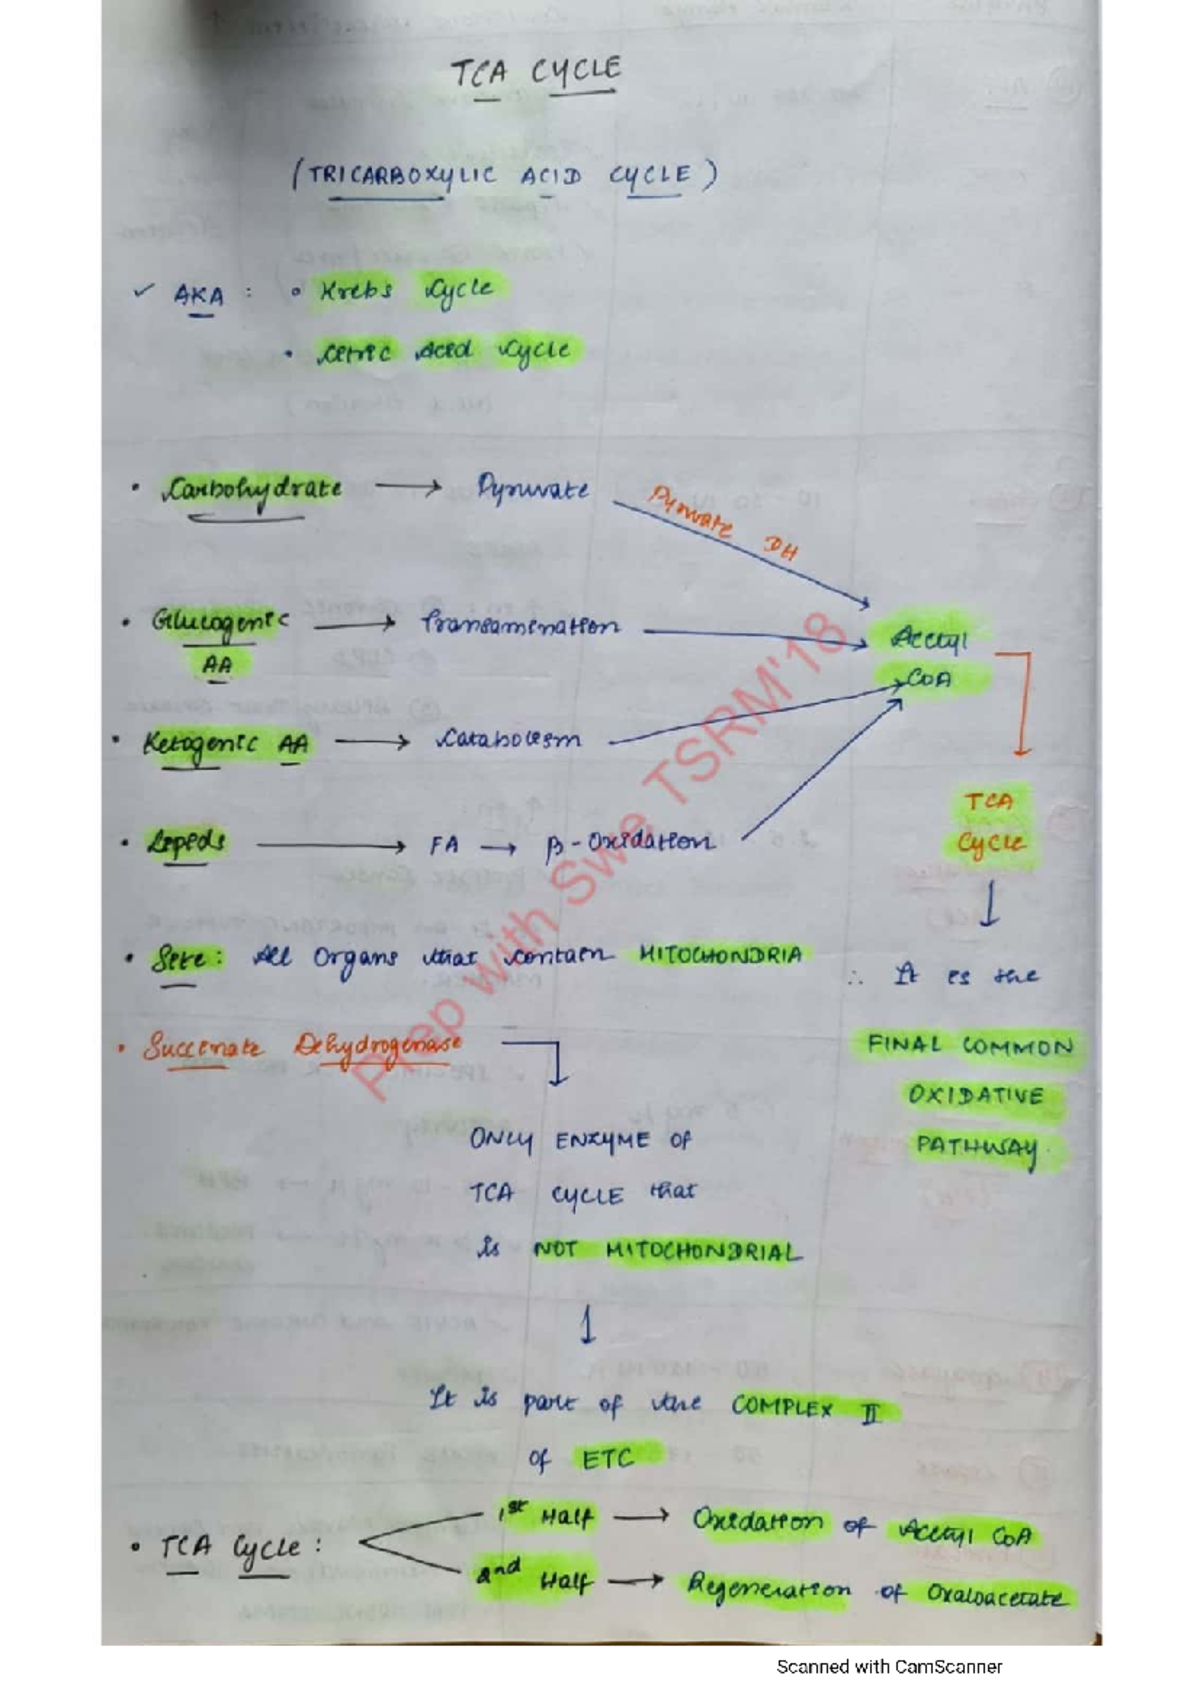 TCA CYCLE
(TRICARBOXYLIC ACID CYCLE)
✓ AKA : • Krebs Cycle
• Citric Acid Cycle
• Carbohydrate → Pyruvate Pyruvate DH
• Glucogenic → Transamination
AA
Acetyl
CoA
• Ketogenic AA → Catabolism
TCA
Cycle
• Lipids → FA → β-Oxidation
↓
• Site : All Organs that contain MITOCHONDRIA
∴ It is the
FINAL COMMON
OXIDATIVE
PATHWAY.
• Succinate Dehydrogenase
ONLY ENZYME OF
TCA CYCLE that
is NOT MITOCHONDRIAL
↓
It is part of the COMPLEX II
of ETC
• TCA Cycle :
1st Half → Oxidation of Acetyl CoA
2nd Half → Regeneration of Oxaloacetate
Prep with Swe, TSRM'18
Scanned with CamScanner